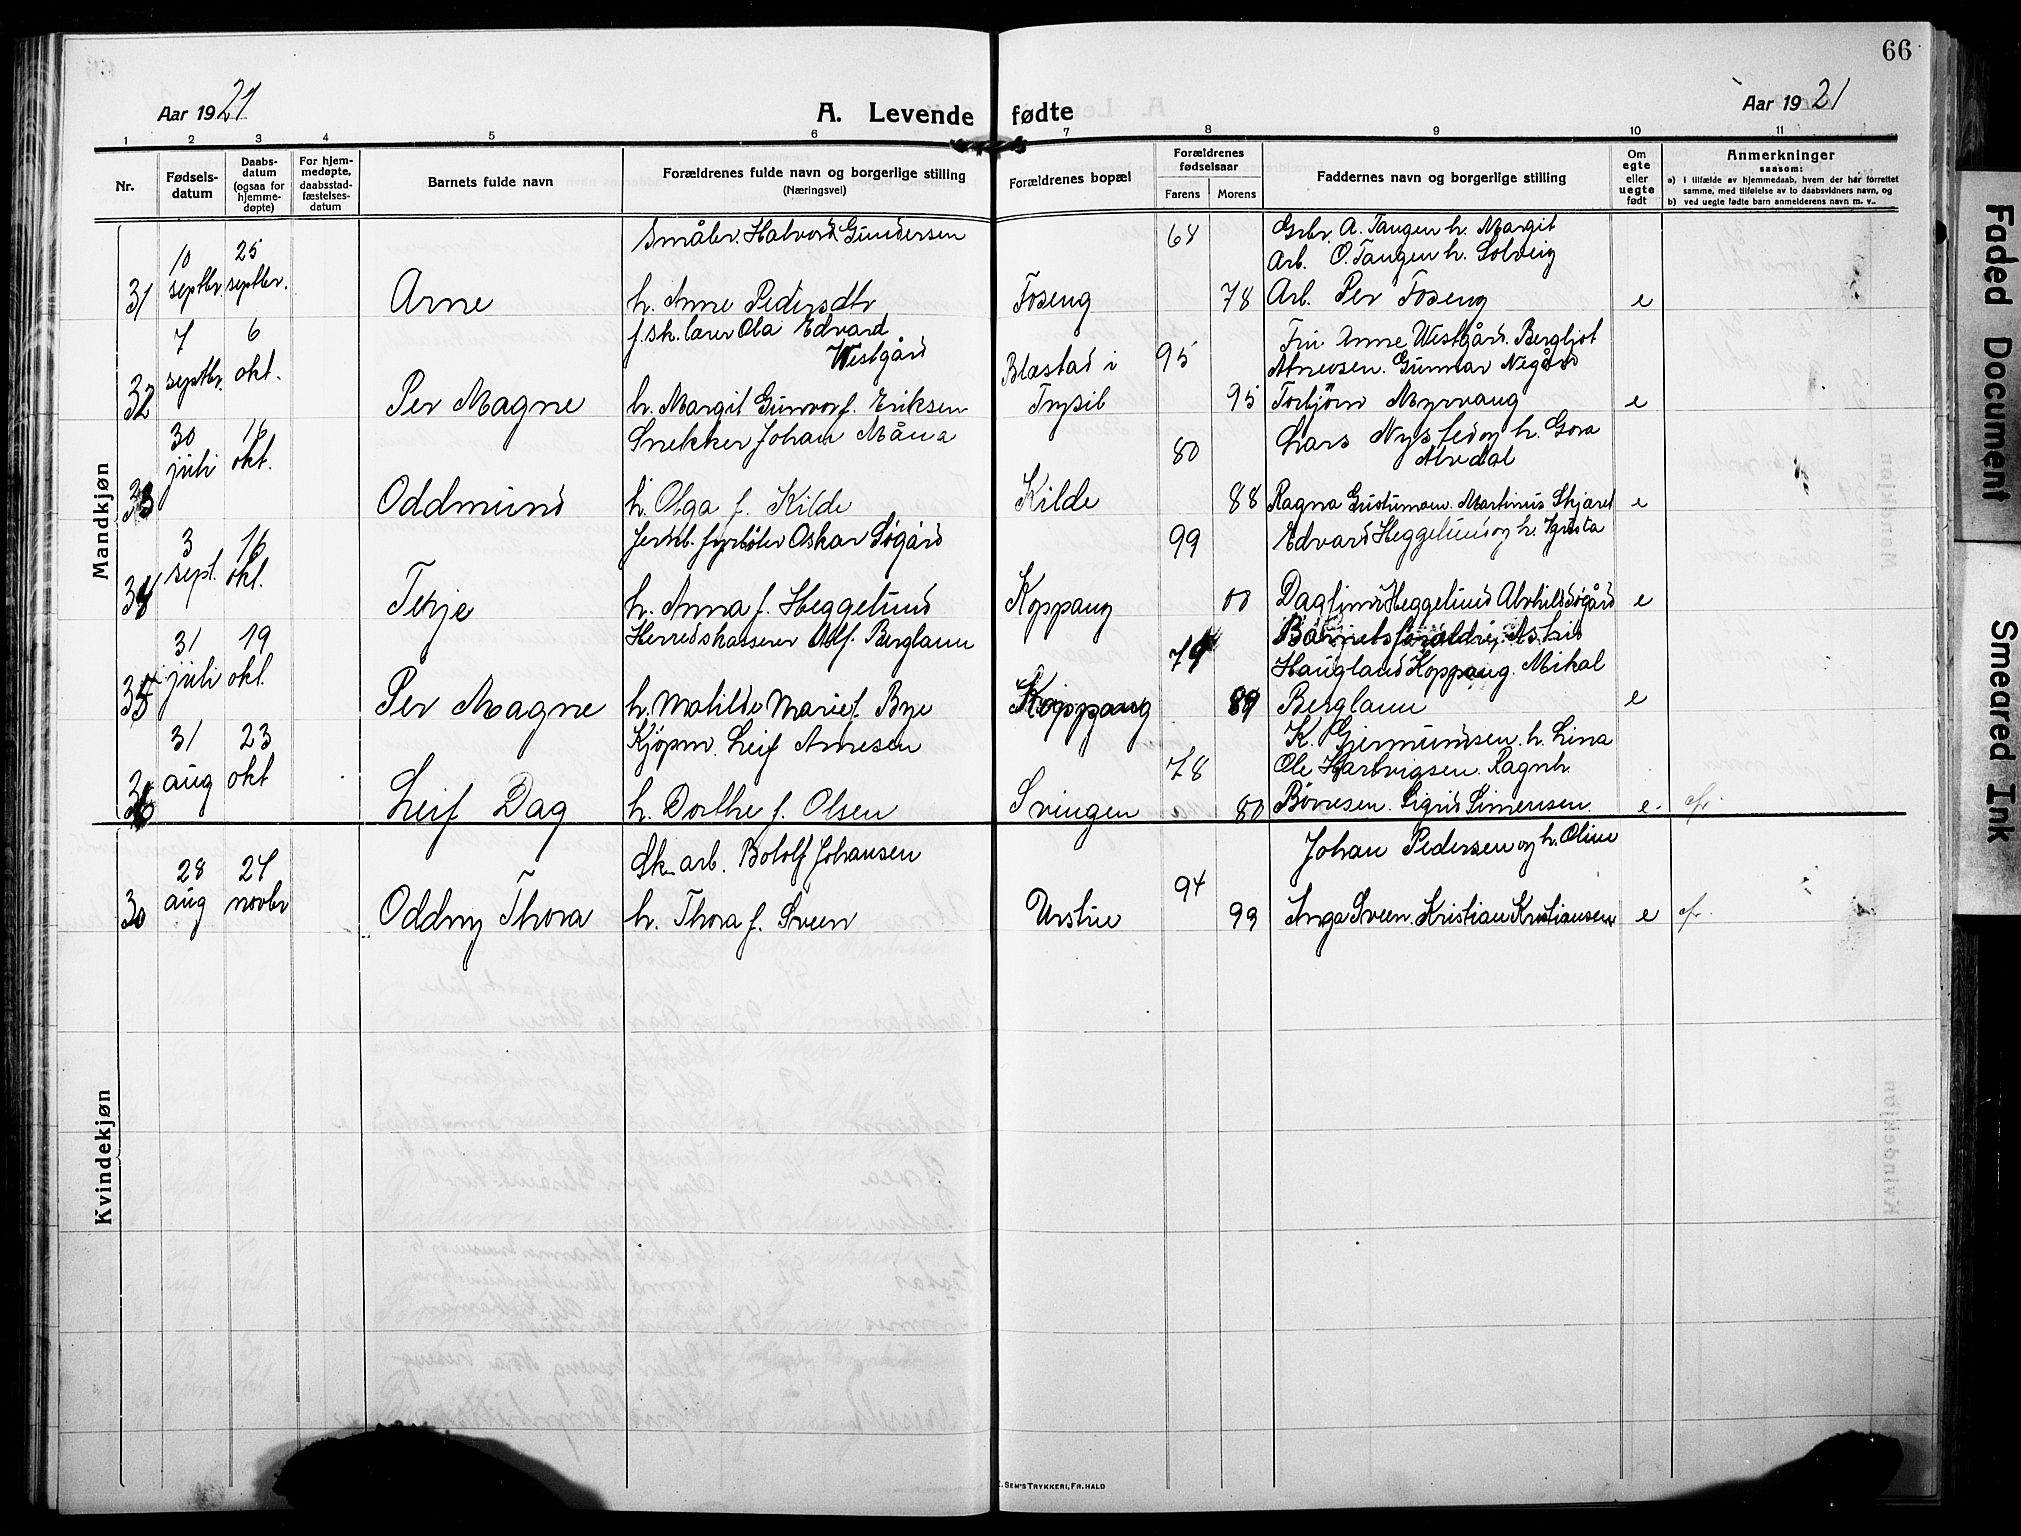 66
Aar 1921
A. Levende fødte
Aar 1921
1 2 3 4 5 6 7 8 9 10 11
Nr.
Fødsels-
datum
Daabs-
datum
(ogsaa for
hjemme-
døpte)
For hjem-
medøpte,
daabsstad-
fæstelses-
datum
Barnets fulde navn
Forældrenes fulde navn og borgerlige stilling
(Næringsvei)
Forældrenes bopæl
Forældrenes
fødselsaar
Farens Morens
Faddernes navn og borgerlige stilling
Om
egte
eller
uegte
født
Anmerkninger
saasom:
a) i tilfælde av hjemmedaab, hvem der har forrettet
samme, med tilføielse av to daabsvidners navn, og
b) ved uegte fødte barn anmelderens navn m. v..
Mandkjøn
Småbr. Halvord Gundersen 68 Grbr. A. Tangen h. Margit
10 25 Arb. O. Tangen h. Solveig
31 septbr. septbr. Arne h. Anne Pedersdtr Foseng 78 Arb. Per Foseng e
7 6 f. sk. lærer Ola Edvard Anne Westgård. Bergljot
Westgård Blæstad i 95 Gunnar Negård
32 septbr. okt. Per Magne h. Margit Gunvor f. Eriksen Trysil 95 Torbjørn Myrvang e
30 16 Snekker Johan Måna 80 Lars Nysted og h. Gora
juli okt. Alvdal
33 Oddmund h. Olga f. Kilde Kilde 88 Ragna Martinus Skjæret e
3 16 Jernb. fyrbøter Oskar Søgård 99 Edvard Heggelund og h.
34 sept. okt. Terje h. Anna f. Heggelund Koppang 00 Dagfinn Heggelund Alvhild Søgård e
31 19 Herredskasserer Adf. Berglann 79 Barnets forældre, Astrid
Haugland Koppang. Mikal
35 juli okt. Per Magne h. Matilde Marie f. Bye Koppang 89 Berglann e
31 23 Kjøpm. Leif Arnesen 78 K. Gjermundsen. h. Lina
Ole Hartvigsen. Ragnh.
36 aug okt Leif Dag h. Dorthe f. Olsen Svingen 80 Børresen. Sigrid Simensen. e.
Kvindekjøn
28 27 Sk. arb. Botolf Johansen 94 Johan Pedersen og h. Oline
30 aug novbr Oddny Thora h. Thora f. Sveen Urstue 99 Inga Sveen. Kristian Kristiansen e
E. SEM'S TRYKKERI, FR.HALD
Faded Document
Smeared Ink